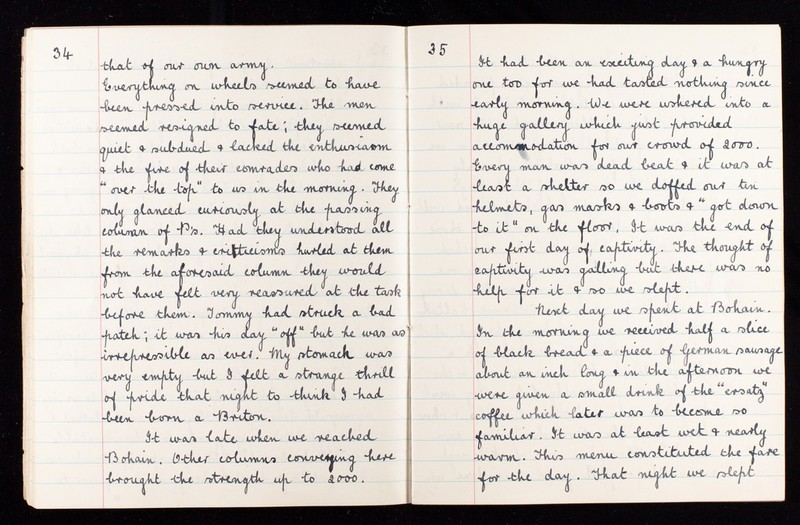 34
that of our own army.
Everything on wheels seemed to have
been pressed into service. The men
seemed resigned to fate; they seemed
quiet & subdued & lacked the enthusiasm
& the fire of their comrades who had come
"over the top" to us in the morning. They
only glanced curiously at the passing
column of P's. Had they understood all
the remarks & critticisms hurled at them
from the aforesaid column they would
not have felt very reassured at the task
before them. Tommy had struck a bad
patch; it was his day "off" but he was as
irrepressible as ever. My stomach was
very empty but I felt a strange thrill
of pride that night to think I had
been born a Briton.
It was late when we reached
Bohain. Other columns converging here
brought the strength up to 2000.
35
It had been an exciting day & a hungry
one too for we had tasted nothing since
early morning. We were ushered into a
huge gallery which just provided
accommodation for our crowd of 2000.
Every man was dead beat & it was at
least a shelter so we doffed our tin
helmets, gas masks & boots & "got down
to it" on the floor. It was the end of
our first day of captivity. The thought of
captivity was galling but there was no
help for it & so we slept.
Next day we spent at Bohain.
In the morning we received half a slice
of black bread & a piece of German sausage
about an inch long & in the afternoon we
were given a small drink of the "ersatz"
coffee which later was to become so
familiar. It was at least wet & nearly
warm. This menu constituted the fare
for the day. That night we slept